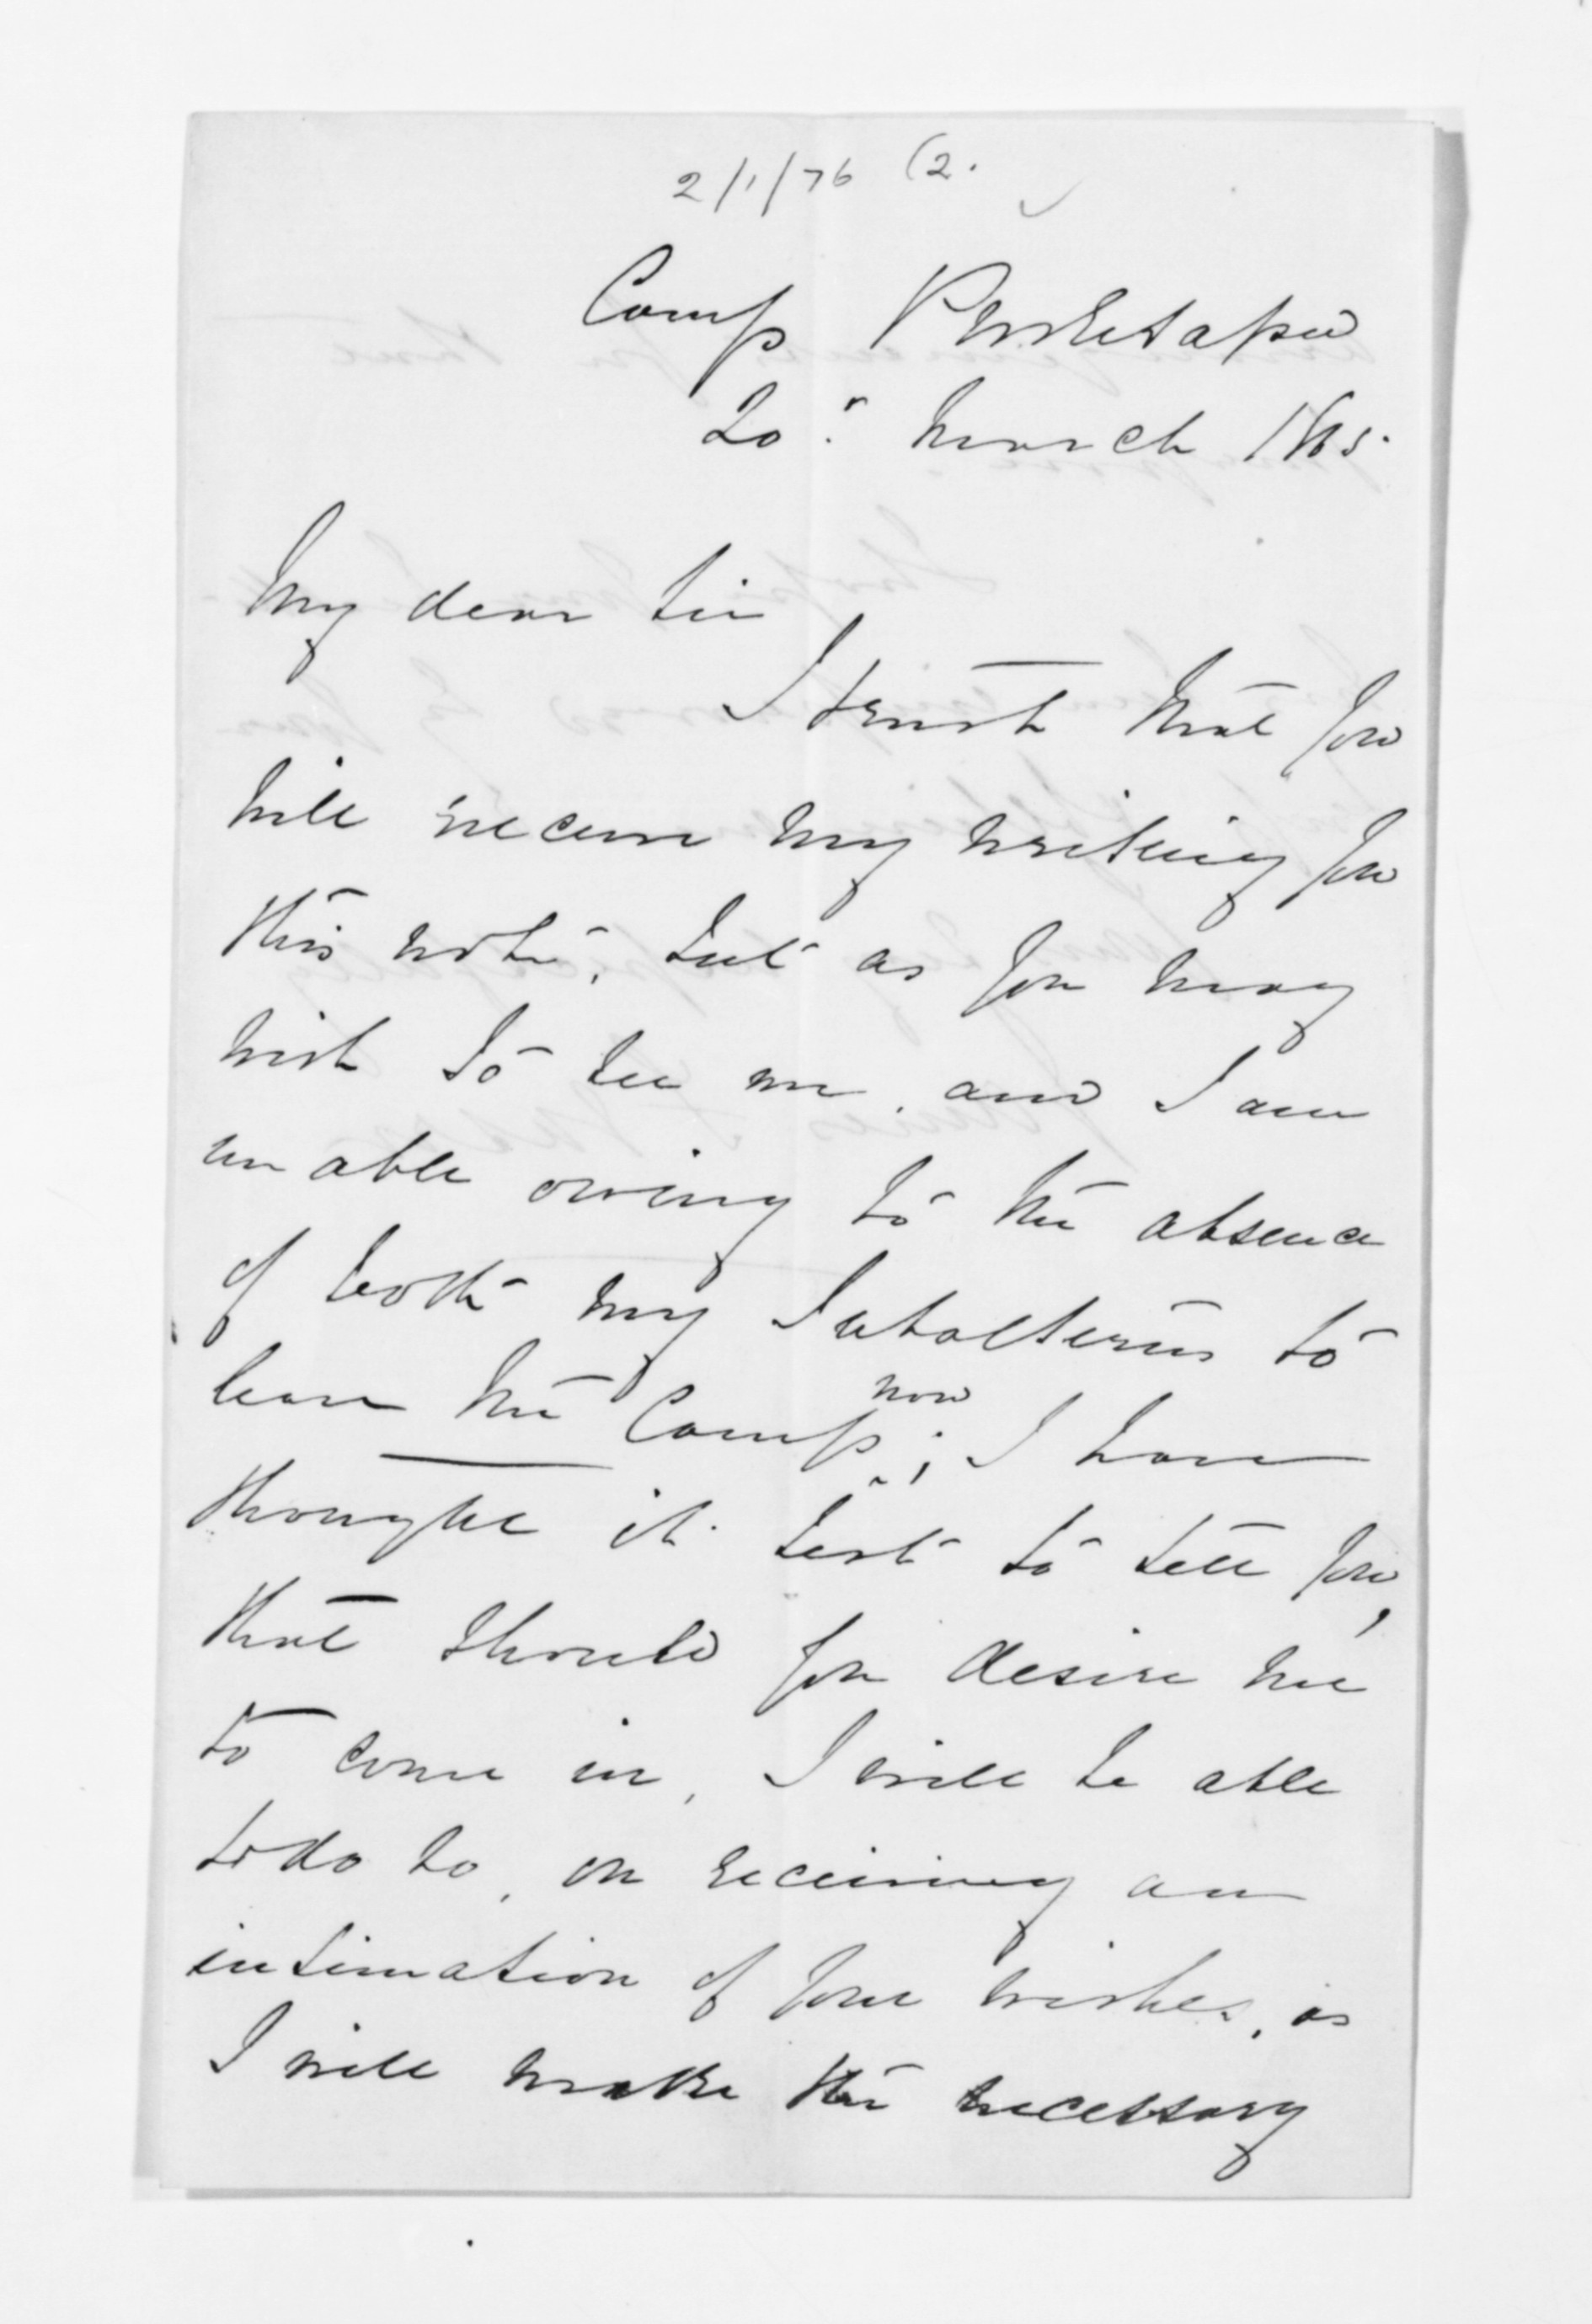 2/1/76 (2.
Camp Puketapu
20th March 1865.
My dear Sir
I trust that you
will excuse my writing you
this note, but as you may
wish to see me, and I am
unable owing to the absence
of both my Subalterns to
leave the Camp now; I have
thought it best to tell you,
that should you desire me
to come in, I will be able
to do so, on receiving an
intimation of your wishes, as
I will make the necessary